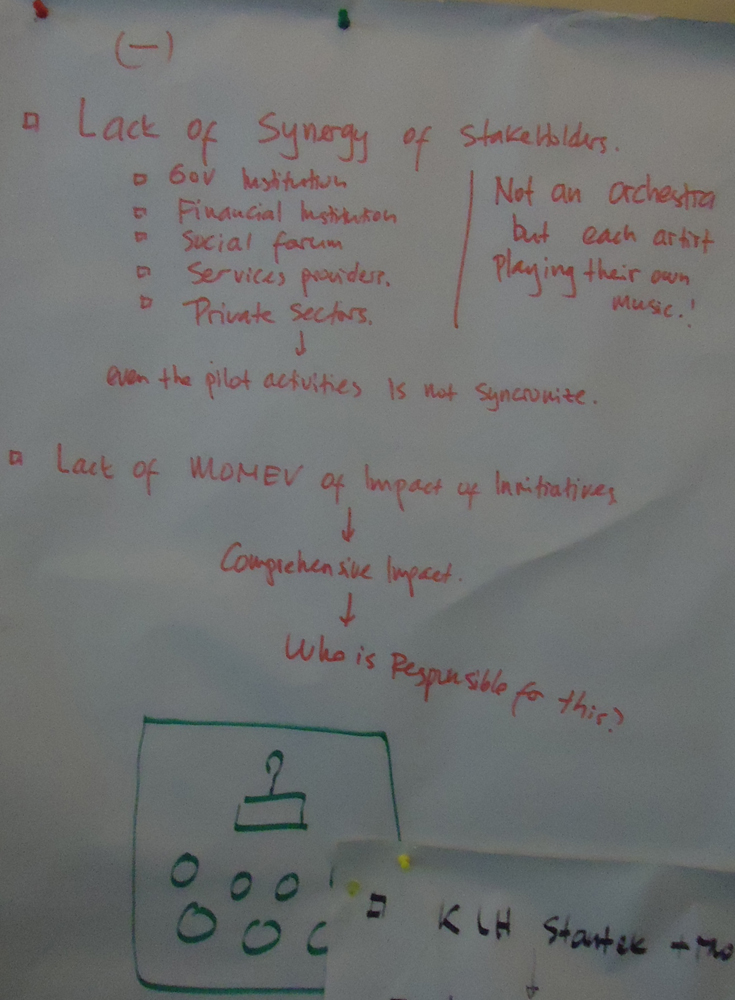 (-)
Lack of Synergy of Stakeholders.
Gov Institution
Financial Institution
Social forum
Services providers.
Private sectors.
Not an orchestra
but each artist
Playing their own
music.!
even the pilot activities is not syncronize.
Lack of MOMEV of Impact of Inritiatives
Comprehensive Impact.
Who is Responsible for this?
?
KLH